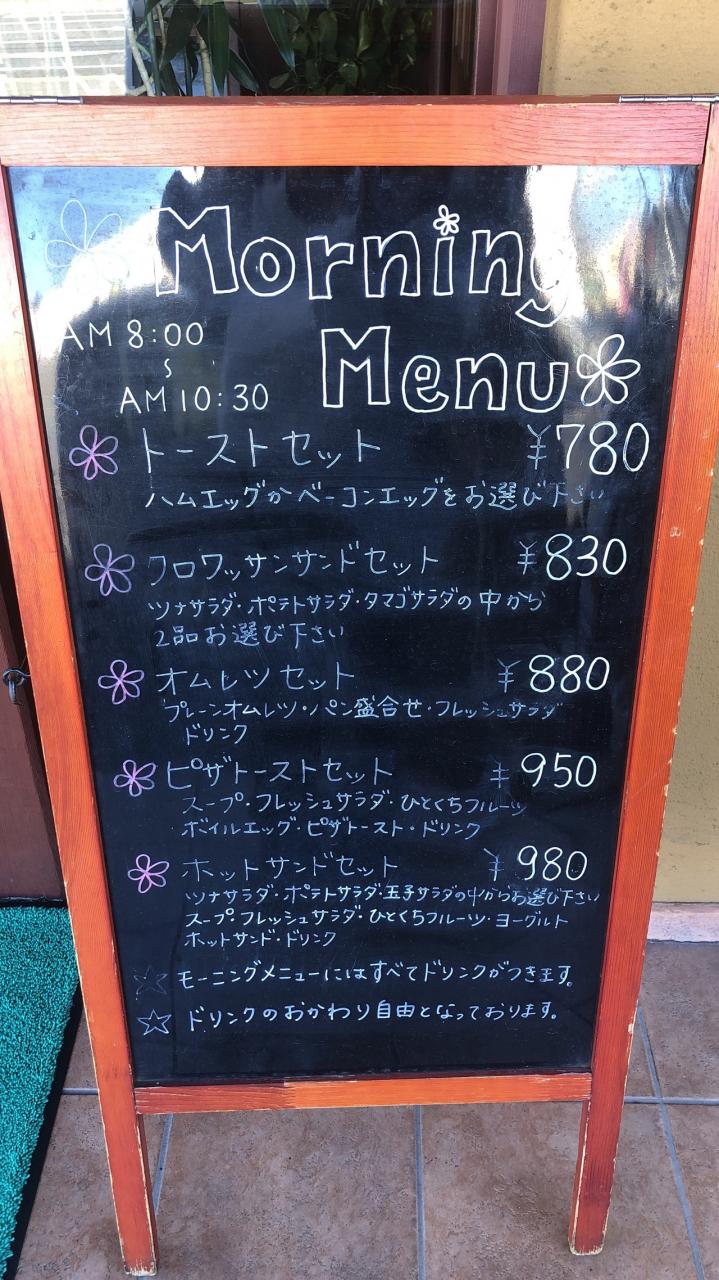 Morning
AM 8:00
〜
AM 10:30
Menu
トーストセット ¥780
ハムエッグかベーコンエッグをお選び下さい
クロワッサンサンドセット ¥830
ツナサラダ・ポテトサラダ・タマゴサラダの中から
2品お選び下さい
オムレツセット ¥880
プレーンオムレツ・パン盛合せ・フレッシュサラダ
ドリンク
ピザトーストセット ¥950
スープ・フレッシュサラダ・ひとくちフルーツ
ボイルエッグ・ピザトースト・ドリンク
ホットサンドセット ¥980
ツナサラダ・ポテトサラダ・玉子サラダの中からお選び下さい
スープ・フレッシュサラダ・ひとくちフルーツ・ヨーグルト
ホットサンド・ドリンク
☆モーニングメニューにはすべてドリンクがつきます。
☆ドリンクのおかわり自由となっております。